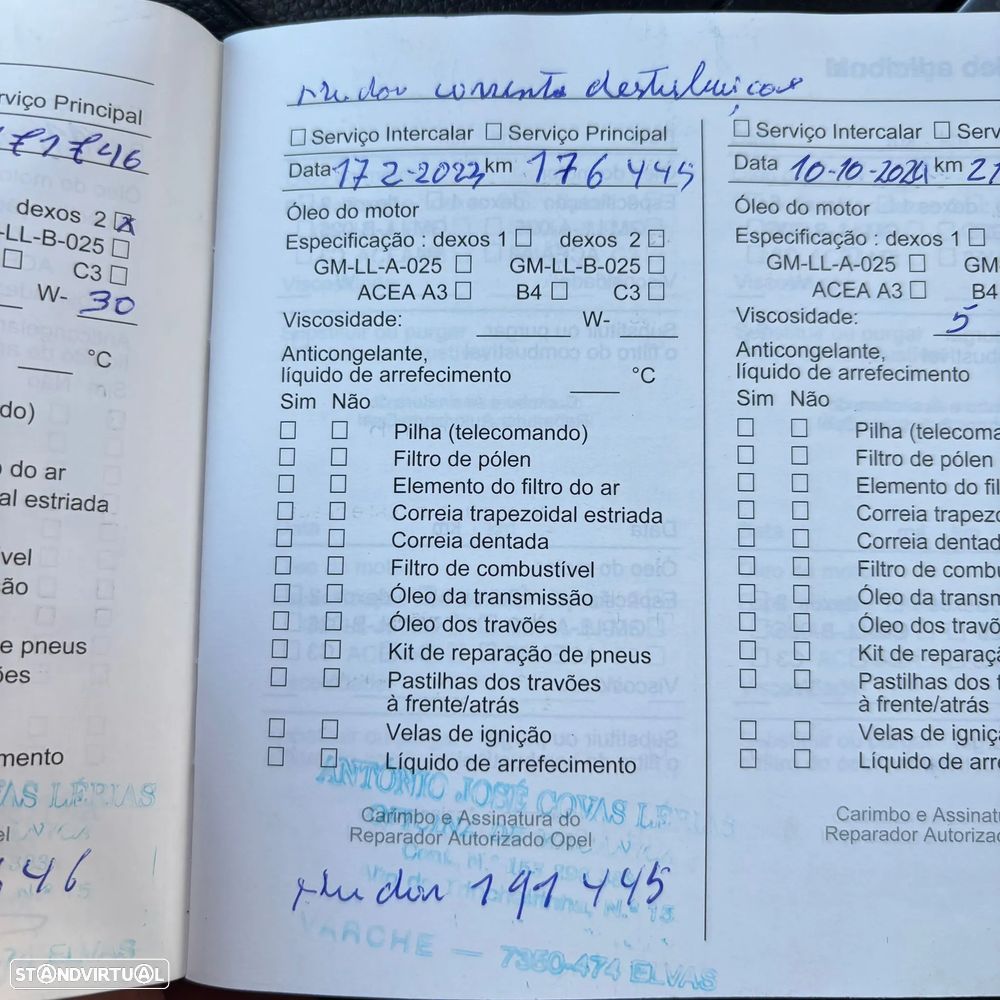 rviço Principal
171746
dexos 2
-LL-B-025
C3
W- 30
°C
do)
o do ar
al estriada
ível
ão
e pneus
ões
mento
VAS LÉRIAS
el
46
ELVAS
corrente
Serviço Intercalar Serviço Principal
Data 17 2-2023 km 176 445
Óleo do motor
Especificação : dexos 1 dexos 2
GM-LL-A-025 GM-LL-B-025
ACEA A3 B4 C3
Viscosidade: W-
Anticongelante,
líquido de arrefecimento °C
Sim Não
Pilha (telecomando)
Filtro de pólen
Elemento do filtro do ar
Correia trapezoidal estriada
Correia dentada
Filtro de combustível
Óleo da transmissão
Óleo dos travões
Kit de reparação de pneus
Pastilhas dos travões
à frente/atrás
Velas de ignição
Líquido de arrefecimento
ANTONIO JOSÉ COVAS LÉRIAS
Carimbo e Assinatura do
Reparador Autorizado Opel
191 445
VARCHE — 7350-474 ELVAS
Serviço Intercalar Serv
Data 10-10-2024 km 21
Óleo do motor
Especificação : dexos 1
GM-LL-A-025 GM
ACEA A3 B4
Viscosidade: 5
Anticongelante,
líquido de arrefecimento
Sim Não
Pilha (telecoma
Filtro de pólen
Elemento do fil
Correia trapezo
Correia dentad
Filtro de combu
Óleo da transm
Óleo dos travõ
Kit de reparaçã
Pastilhas dos t
à frente/atrás
Velas de igniçã
Líquido de arre
Carimbo e Assinatu
Reparador Autorizado
STANDVIRTUAL